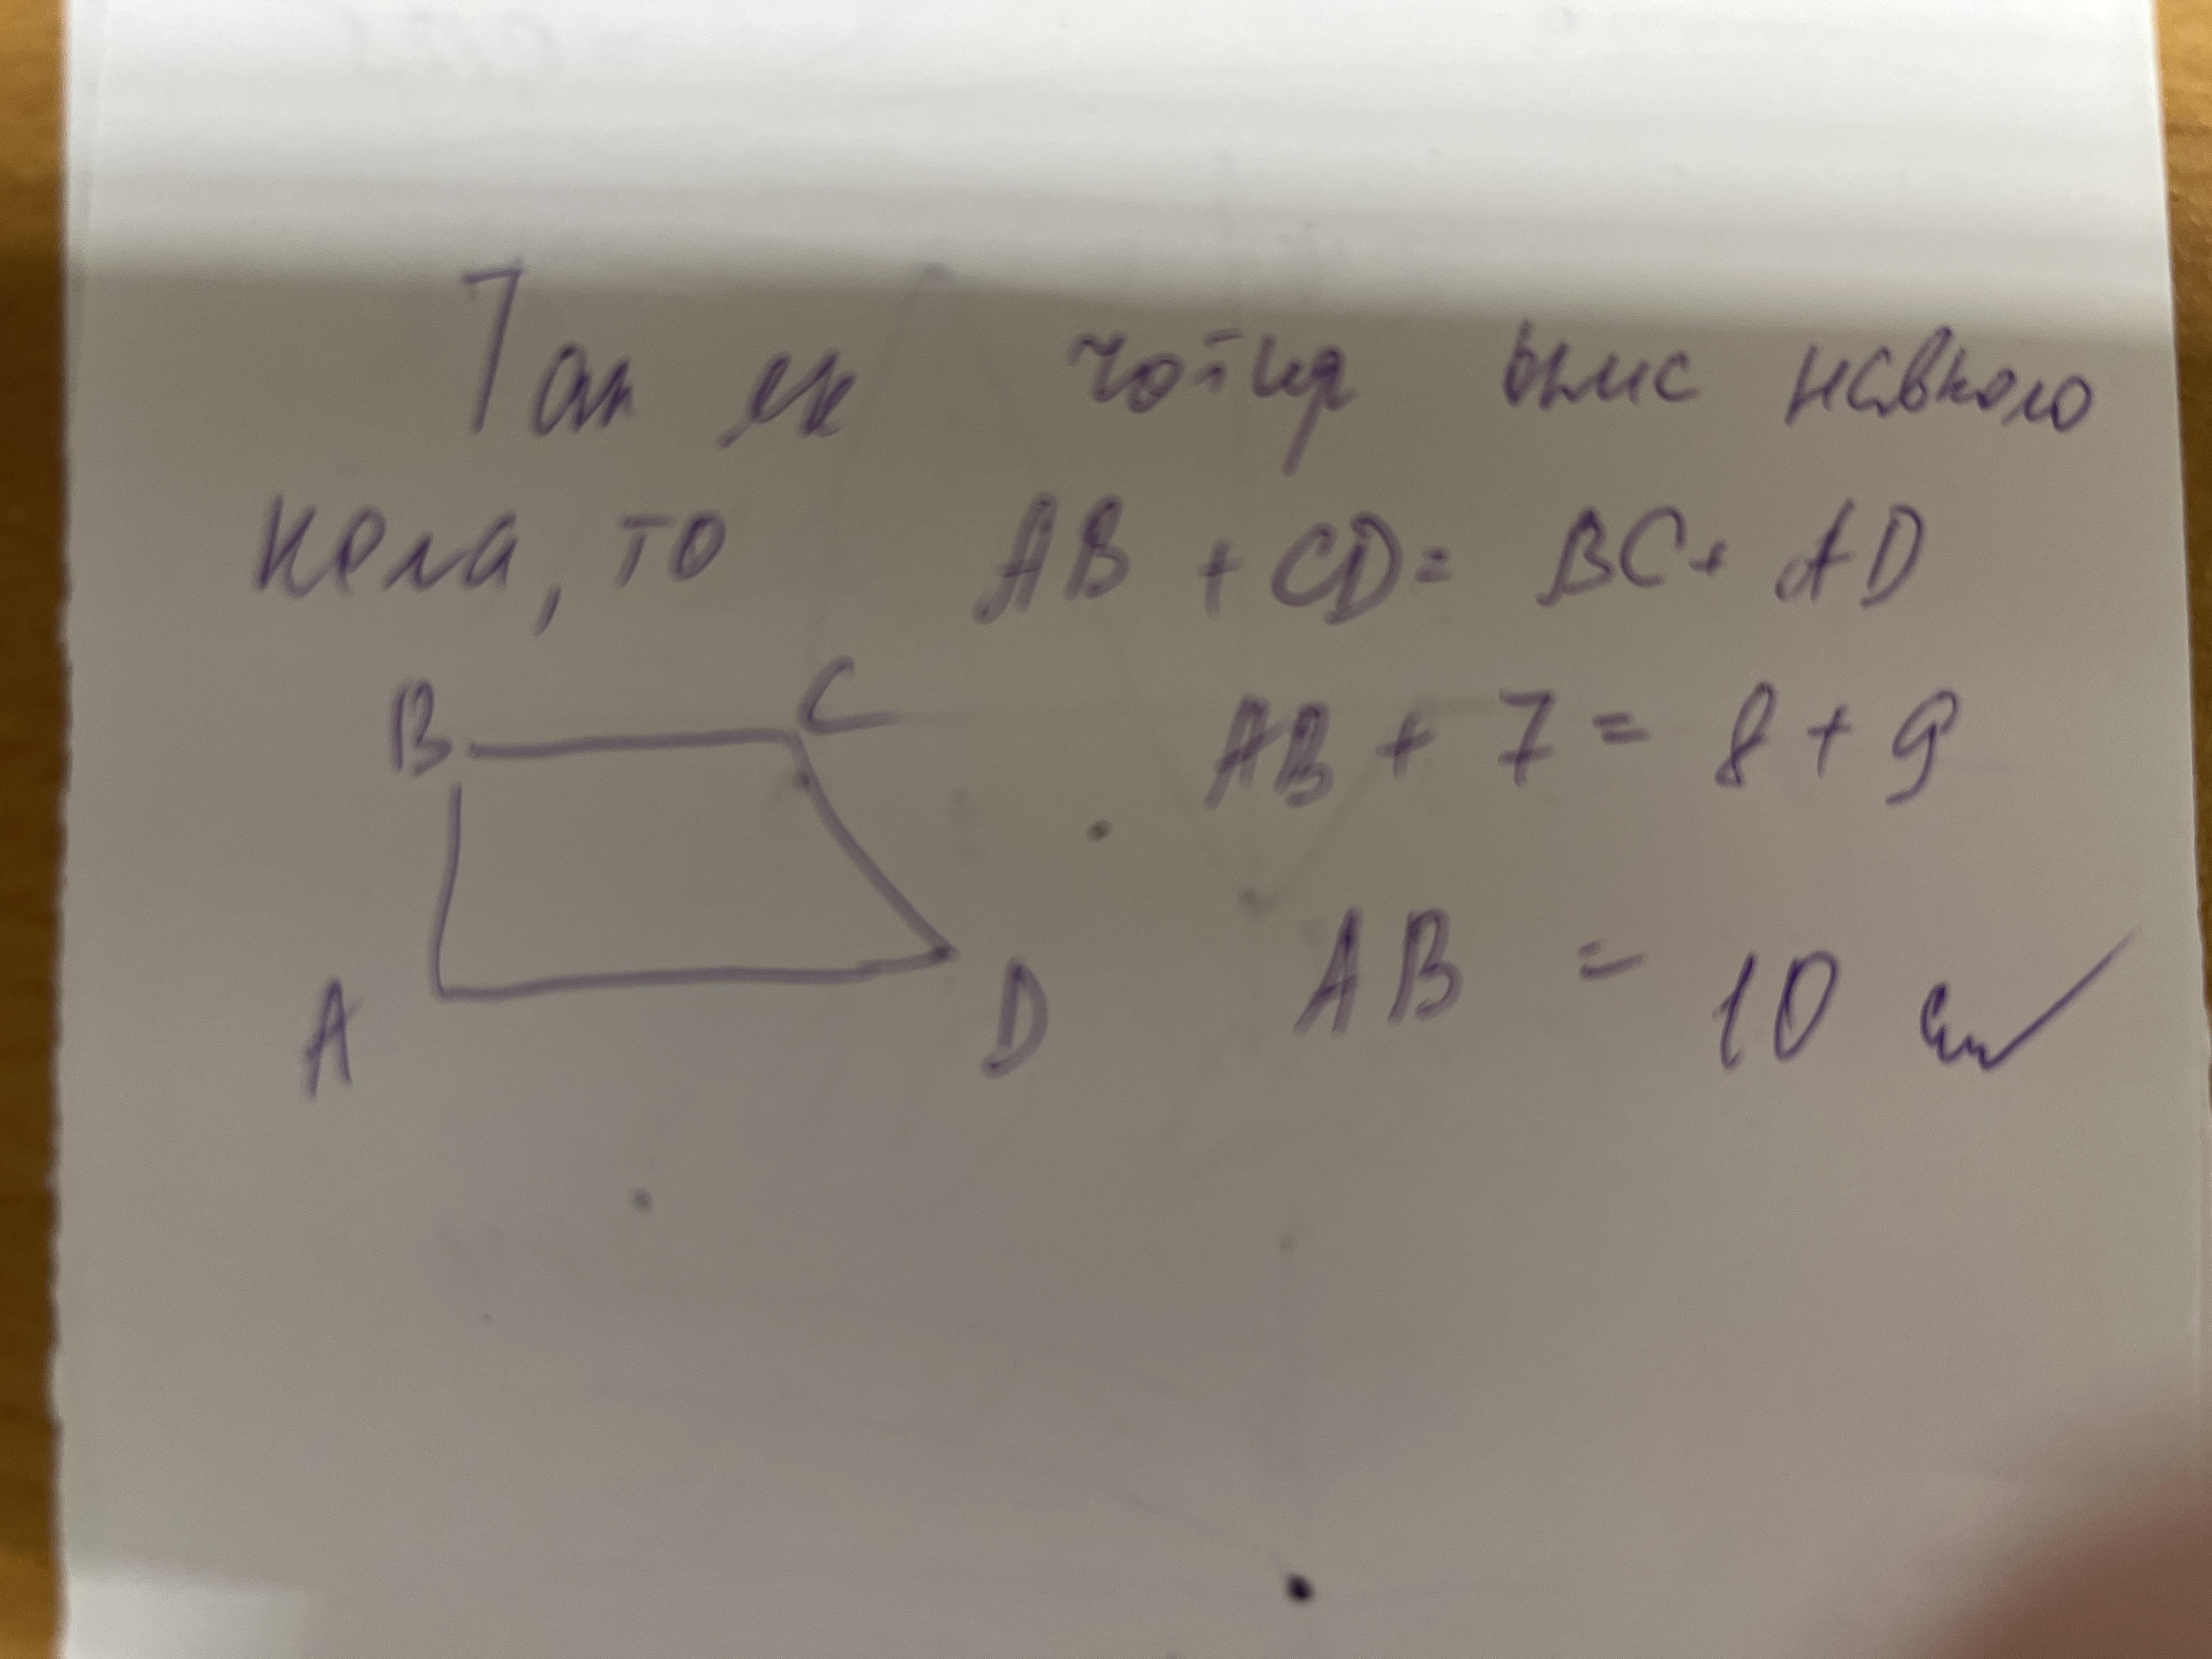 Так як чотир опис навколо
кола, то AB + CD = BC + AD
B C
AB + 7 = 8 + 9
A D
AB = 10 см